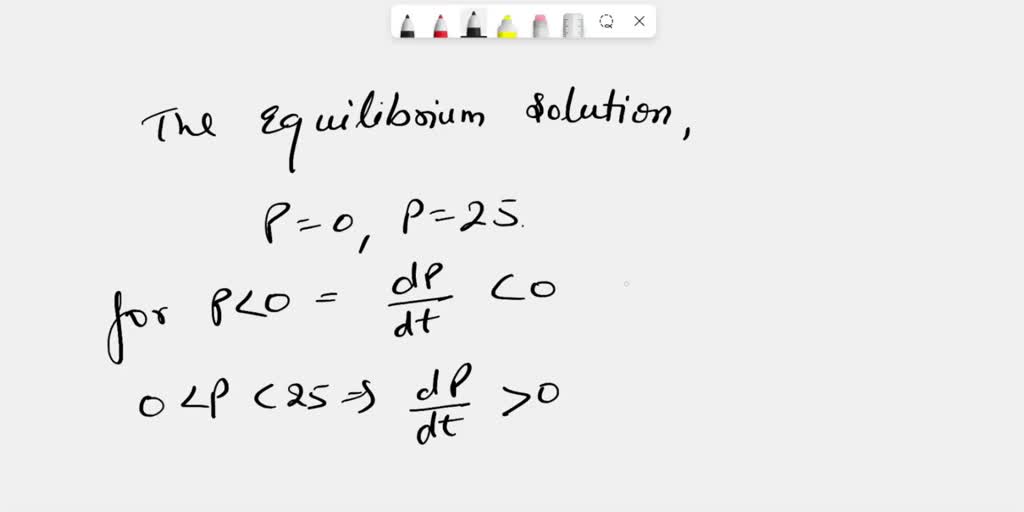 The Equilibrium solution,
P=0, P=25.
for P<0 = dP/dt <0
0<P<25 ⇒ dP/dt >0